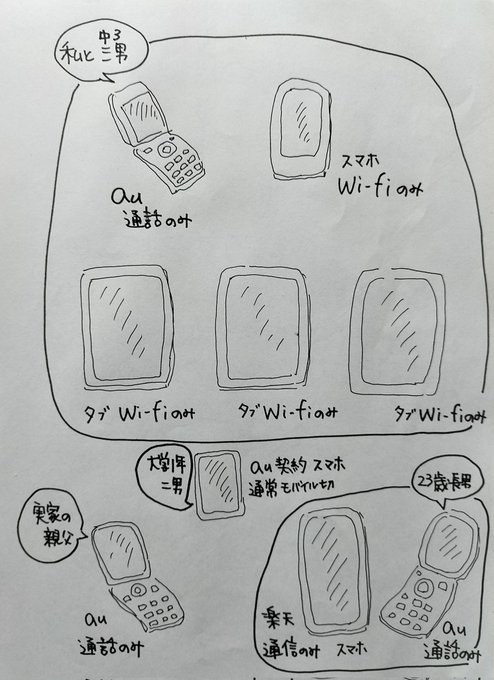 私と 中3
三男
au
通話のみ
スマホ
Wi-fiのみ
タブ Wi-fiのみ
タブ Wi-fiのみ
タブ Wi-fiのみ
大学1年
二男
au契約 スマホ
通常モバイル切
23歳長男
実家の
親父
au
通話のみ
楽天
通信のみ スマホ
au
通話のみ